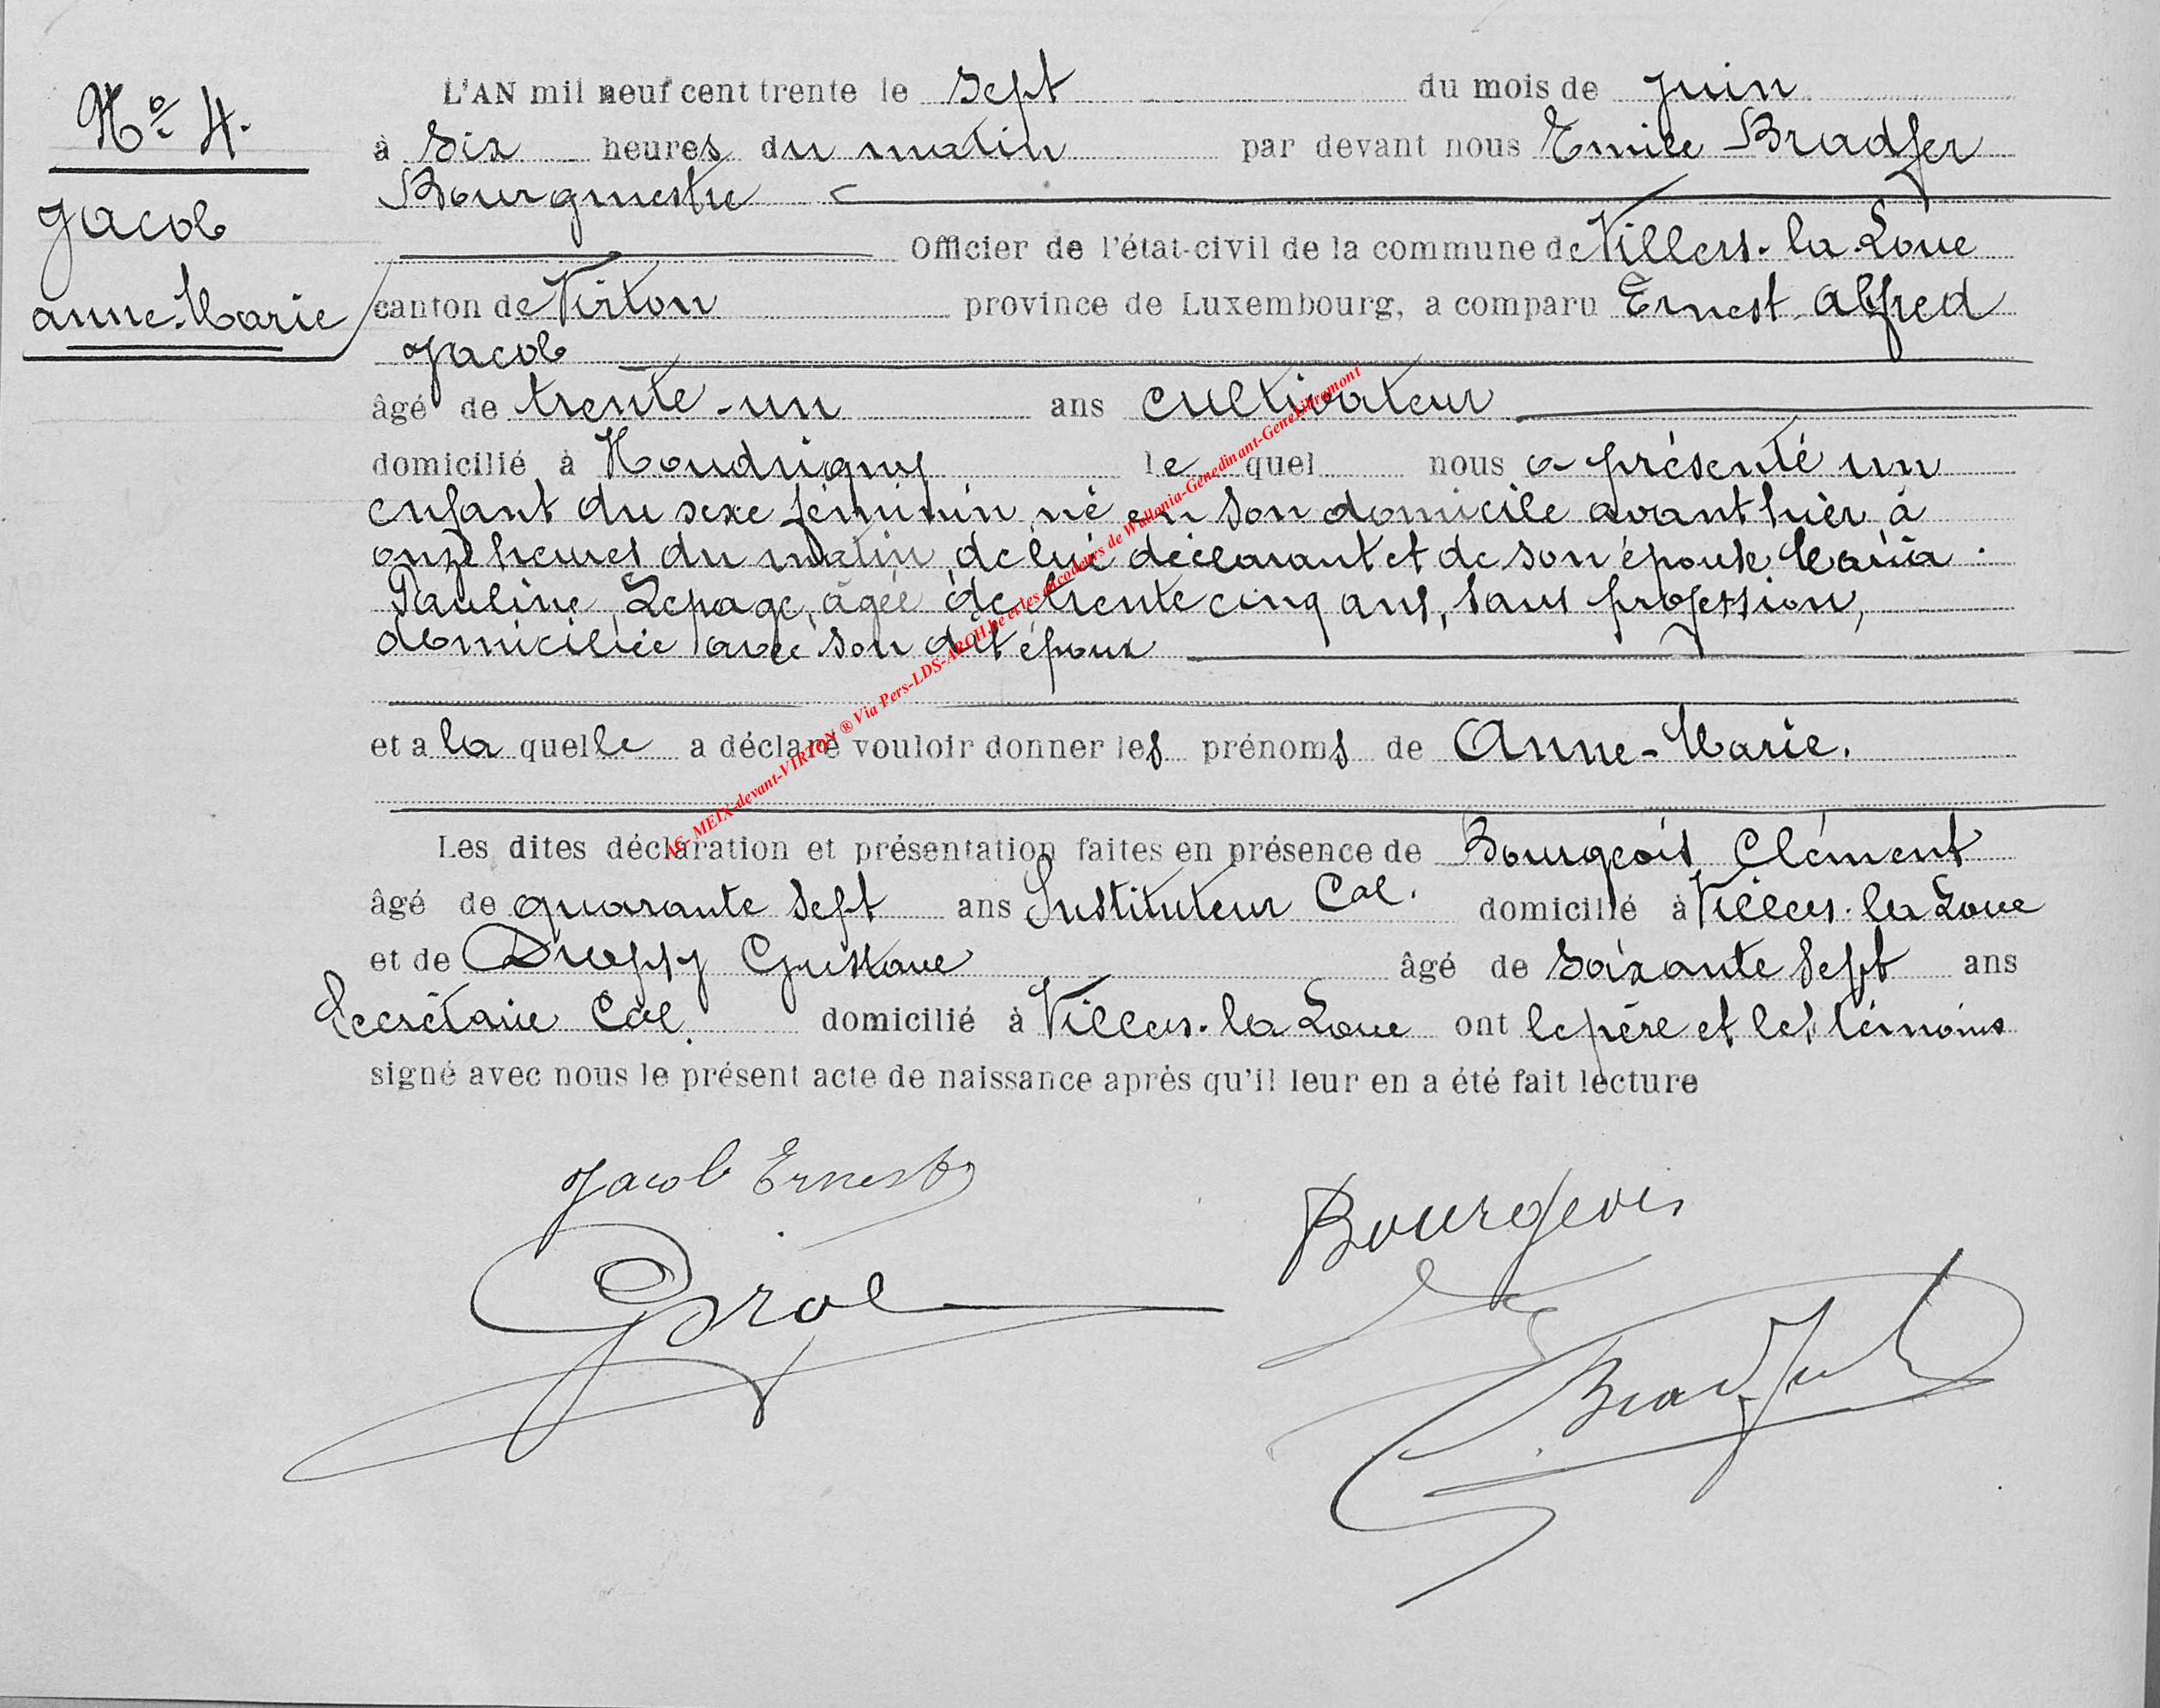 N° 4.
Jacob
Anne-Marie
L'AN mil neuf cent trente le sept du mois de Juin
à six heures du matin par devant nous Emile Bradfer
Bourgmestre
Officier de l'état-civil de la commune de Villers-la-Loue
canton de Virton province de Luxembourg, a comparu Ernest Alfred
Jacob
âgé de trente-un ans cultivateur
domicilié à Houdrigny lequel nous a présenté un
enfant du sexe féminin, né en son domicile avant hier à
onze heures du matin, de lui déclarant et de son épouse Maria
Pauline Lepage, âgée de trente cinq ans, sans profession,
domiciliée avec son dit époux
et a la quelle a déclaré vouloir donner les prénoms de Anne-Marie.
Les dites déclaration et présentation faites en présence de Bourgeois Clément
âgé de quarante sept ans Instituteur Cal. domicilié à Villers-la-Loue
et de Gustave âgé de soixante sept ans
Secrétaire Cal. domicilié à Villers-la-Loue ont le père et les témoins
signé avec nous le présent acte de naissance après qu'il leur en a été fait lecture
Jacob Ernest
Bourgeois
Bradfer
AS- MEIX-devant-VIRTON ® Via Pers-LDS-ARCH.be et les encodeurs de Wallonia-Genedinant-GeneLibramont